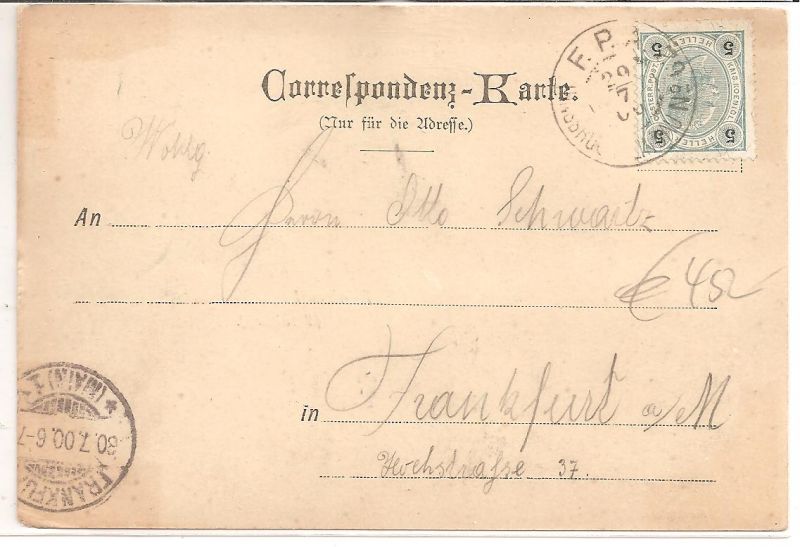 Correspondenz-Karte.
(Nur für die Adresse.)
Wohlg
An Herrn Otto Schwartz
€ 402
in Frankfurt a/M
Hochstrasse 37.
5 5
HELLER
5 5
F.P.
FRANKFU
(MAIN) 1
30.7.00. 6-7